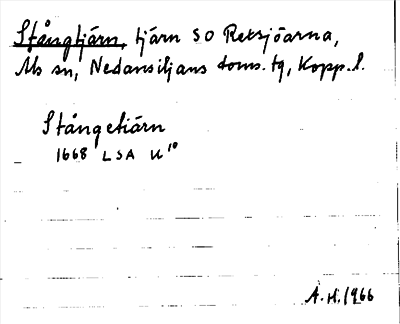 Stångtjärn, tjärn SO Retsjöarna,
Ms sn, Nedansiljans doms. tg, Kopp. l.
Stångetiärn
1668 LSA U¹⁰
A.H. 1966